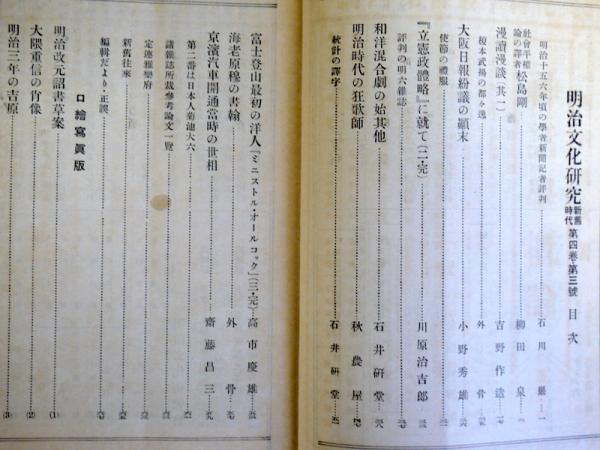 明治文化研究 新舊時代 第四卷・第三號 目次
明治十五六年頃の學者新聞記者評判……石川巖……一
社會平權論の譯者 松島剛……柳田泉
漫讀漫談(其二)……吉野作造
榎本武揚の都々逸……外骨
大阪日報紛議の顚末……小野秀雄
使節の禮服
『立憲政體略』に就て(二・完)……川原治吉郎
評判の明六雜誌
和洋混合劇の始其他……石井研堂
明治時代の狂歌師……秋農屋
統計の譯字……石井研堂
富士登山最初の洋人「ミニストル・オールコック」(三・完)……高市慶雄
海老原穆の書翰……外骨
京濱汽車開通當時の世相……齋藤昌三
第二番は日本人菊池大六
諸雜誌所載參考論文一覽
定連雅樂府
新舊往來
編輯だより・正誤
口繪寫眞版
明治改元詔書草案……(1)
大隈重信の肖像……(2)
明治三年の吉原……(3)